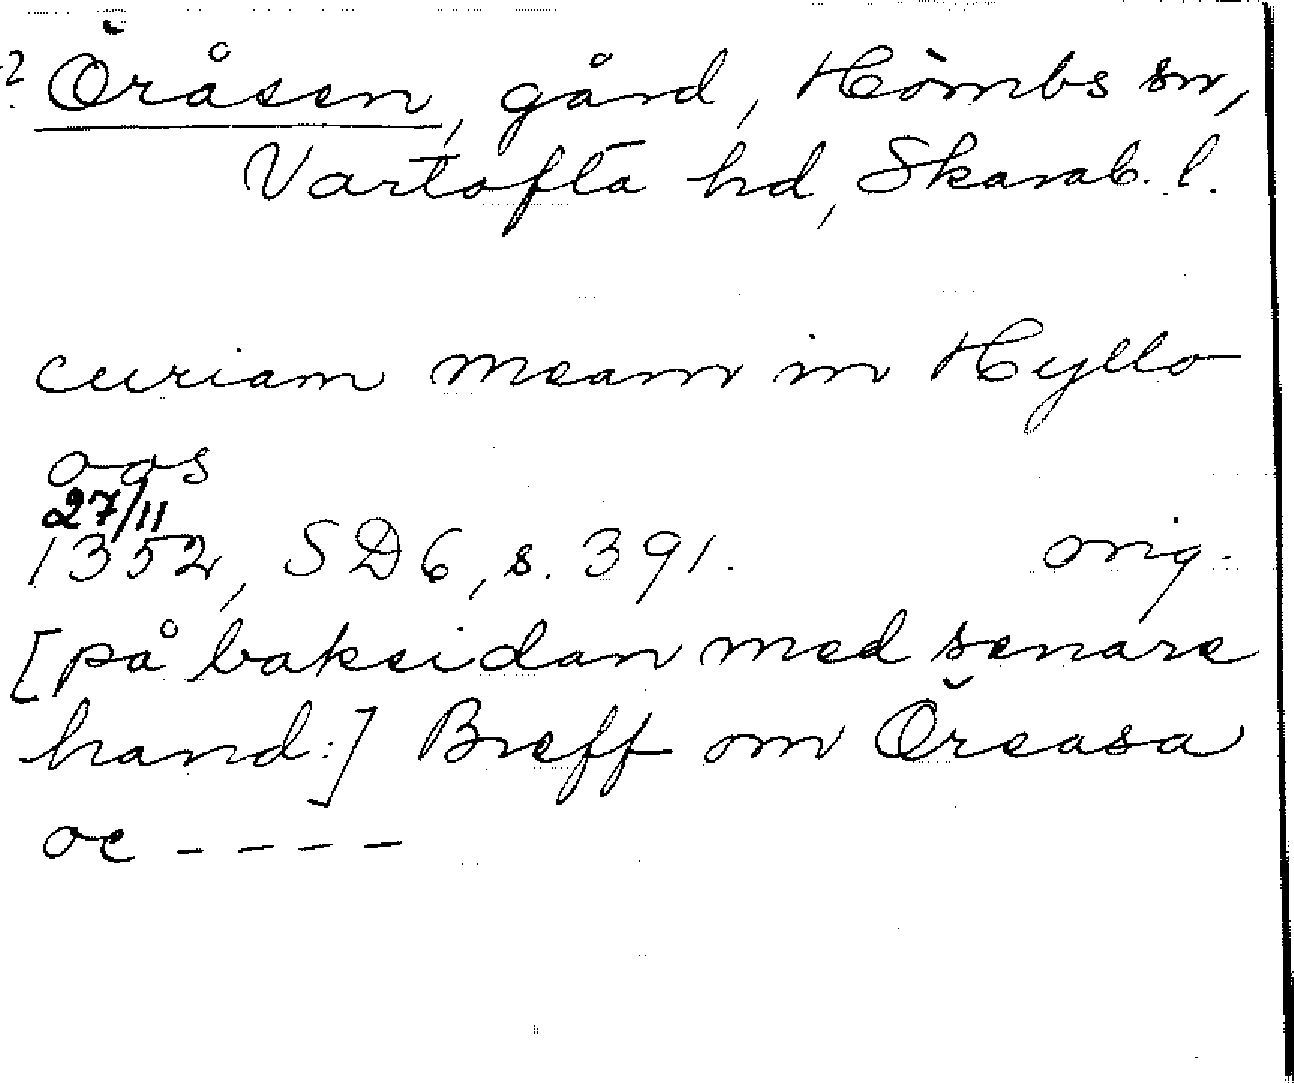 ? Öråsen, gård, Hömbs sn,
Vartofta hd, Skarab. l.
curiam meam in Hyllo
oas
27/11
1352, SD 6, s. 391. orig.
[på baksidan med senare
hand:] Breff om Öreasa
oc - - - -